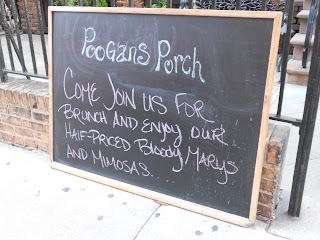 Poogans Porch
Come Join us for
Brunch and enjoy our
Half-Priced Bloody Marys
and Mimosas...